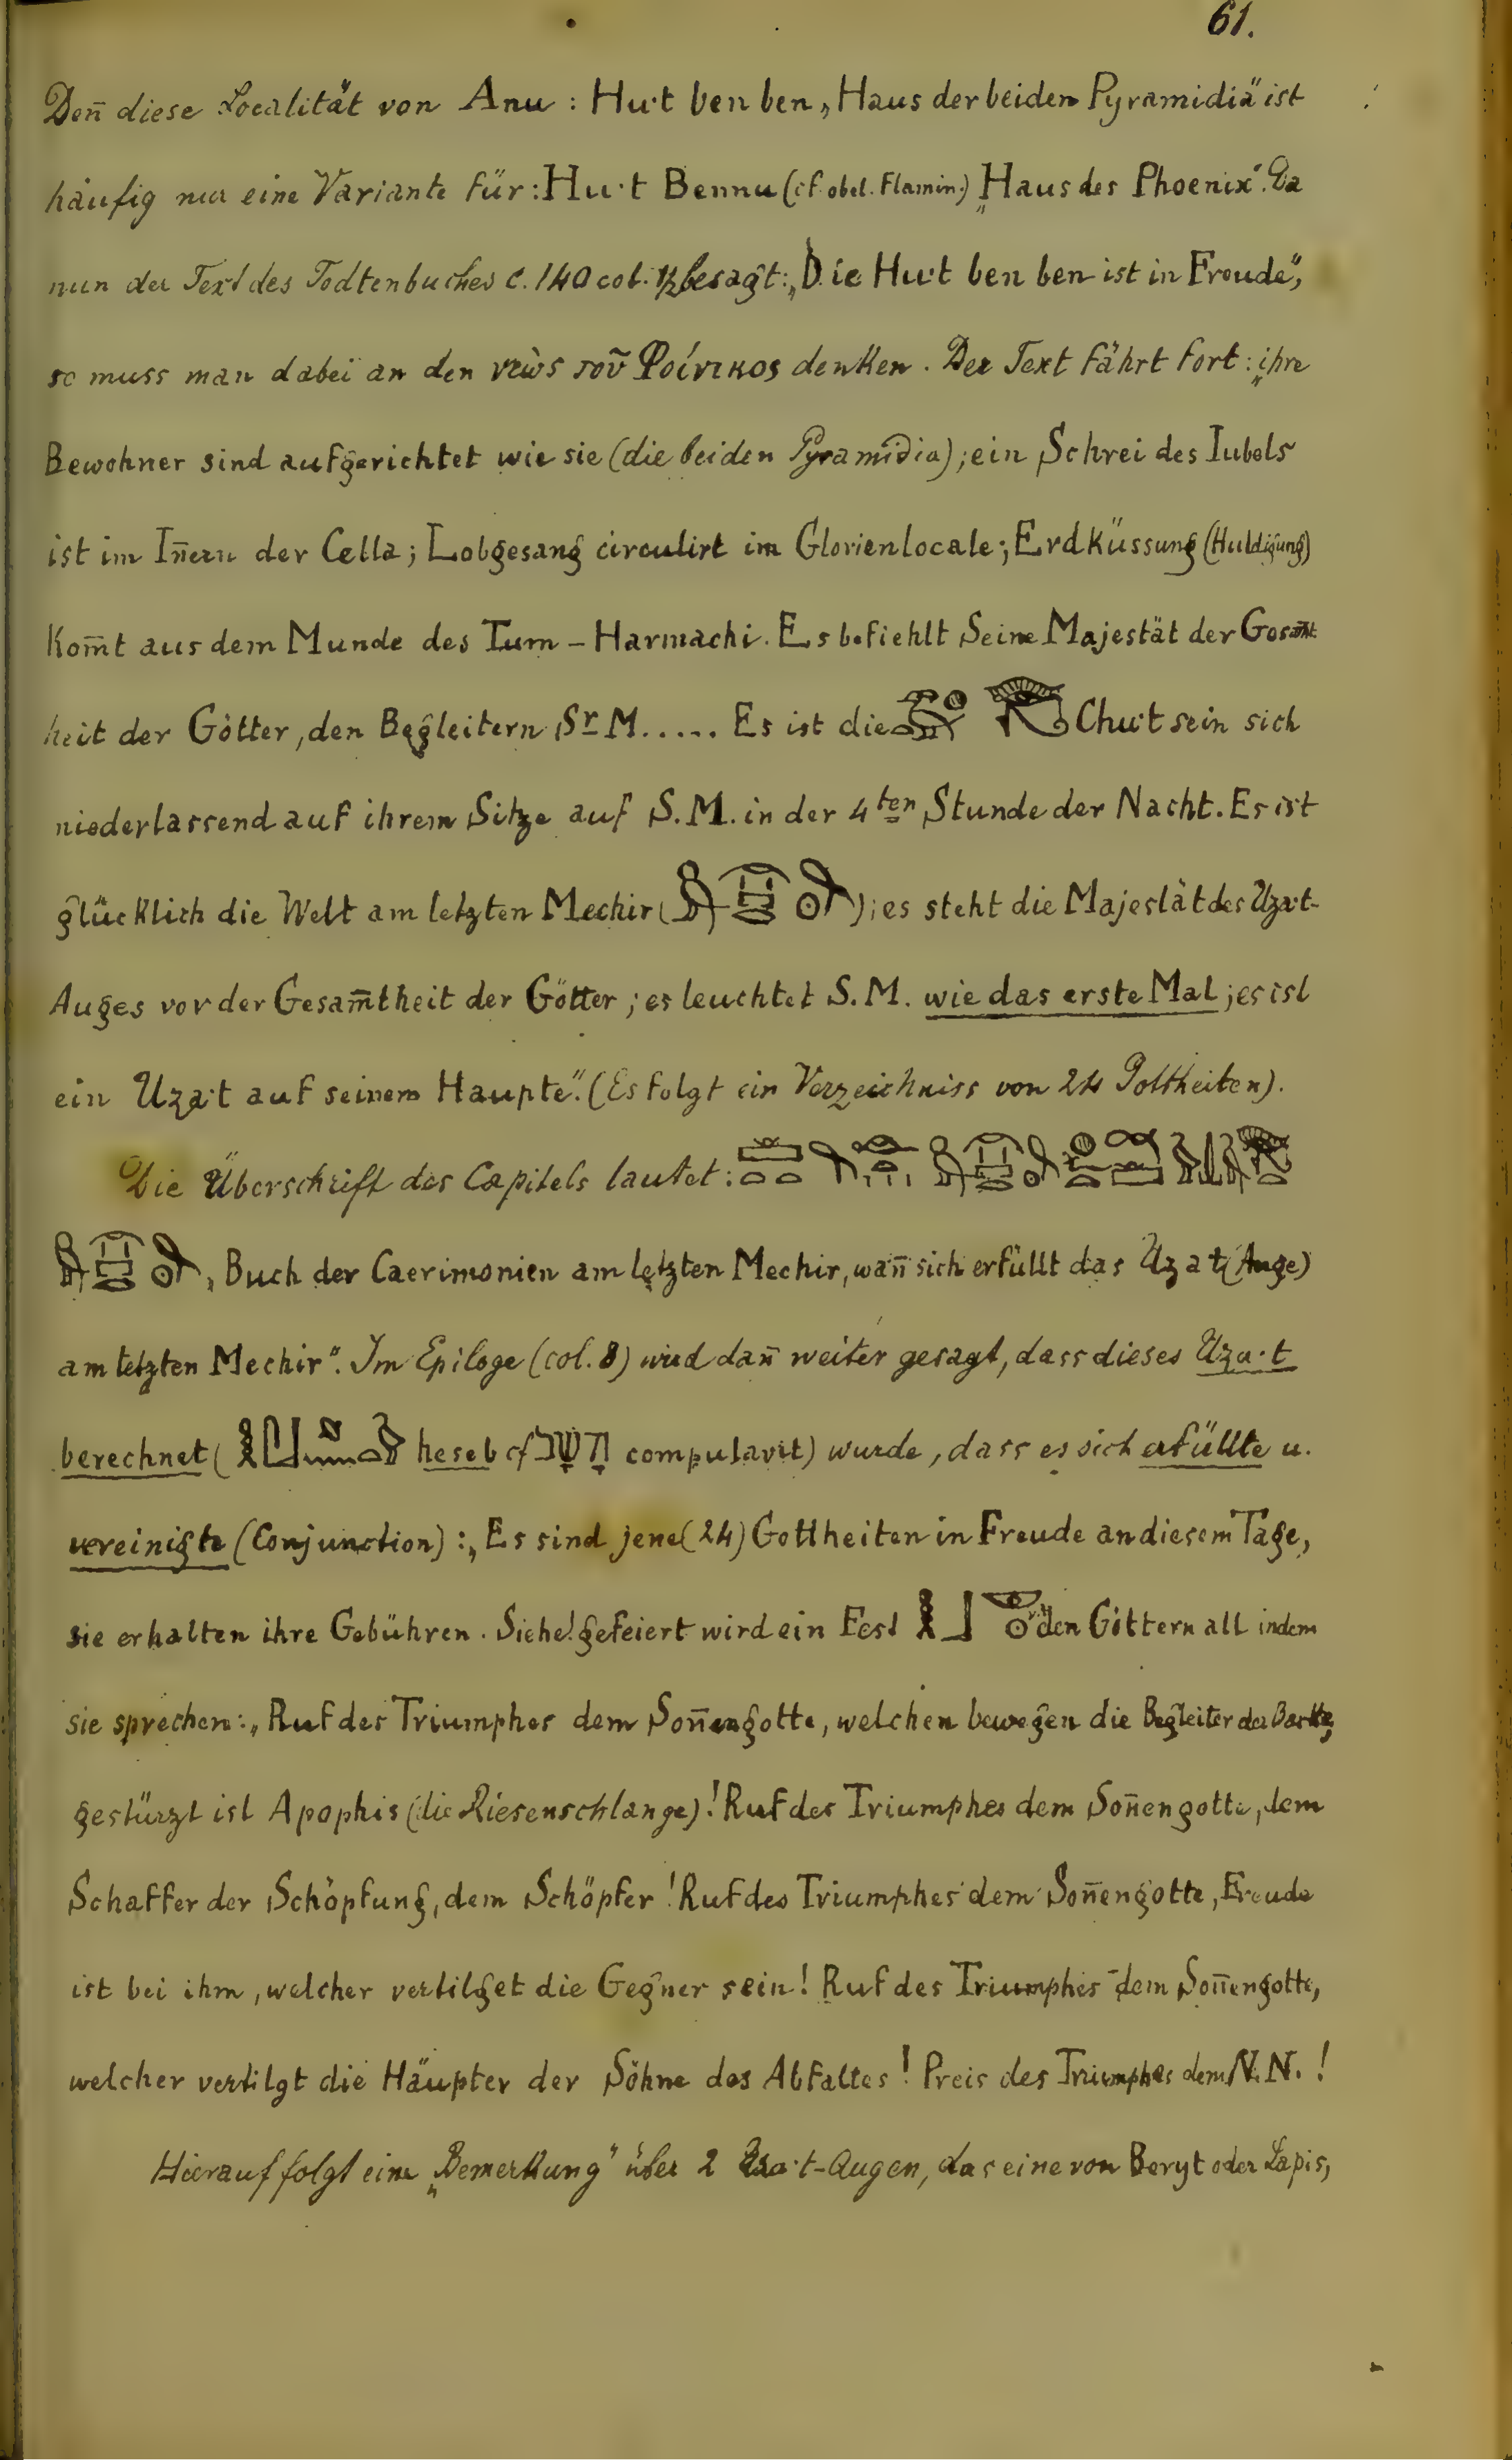 61.
Den̄ diese Localität von Anu : Hu·t ben ben „Haus der beiden Pyramidia" ist
häufig nur eine Variante für: Hu·t Bennu (cf. obel. Flamin.) „Haus des Phoenix". Da
nun der Text des Todtenbuches c. 140 col. besagt: „Die Hu·t ben ben ist in Freude",
so muss man dabei an den νεὼς τοῦ Φοίνικος denken. Der Text fährt fort: „ihre
Bewohner sind aufgerichtet wie sie (die beiden Pyramidia); ein Schrei des Iubels
ist im In̄ern der Cella; Lobgesang circulirt im Glorienlocale; Erdküssung (Huldigung)
kom̄t aus dem Munde des Tum – Harmachi. Es befiehlt Seine Majestät der Gesam̄t
heit der Götter, den Begleitern Sr M..... Es ist die Chu·t sein sich
niederlassend auf ihrem Sitze auf S. M. in der 4ten Stunde der Nacht. Es ist
glücklich die Welt am letzten Mechir ( ); es steht die Majestät des Uza·t-
Auges vor der Gesam̄theit der Götter; es leuchtet S. M. wie das erste Mal; es ist
ein Uza·t auf seinem Haupte". (Es folgt ein Verzeichniss von 24 Gottheiten).
Die Überschrift des Capitels lautet:
„Buch der Caerimonien am letzten Mechir, wan̄ sich erfüllt das Uzat (Auge)
am letzten Mechir". Im Epiloge (col. 8) wird dan̄ weiter gesagt, dass dieses Uza·t
berechnet ( heseb cf חשב computavit) wurde, dass es sich erfüllte u.
vereinigte (Conjunction) : „Es sind jene (24) Gottheiten in Freude an diesem Tage,
sie erhalten ihre Gebühren. Siehe! gefeiert wird ein Fest den Göttern all indem
sie sprechen: „Ruf des Triumphes dem Son̄engotte, welchen bewegen die Begleiter der Barke,
gestürzt ist Apophis (die Riesenschlange)! Ruf des Triumphes dem Son̄engotte, dem
Schaffer der Schöpfung, dem Schöpfer! Ruf des Triumphes dem Son̄engotte, Freude
ist bei ihm, welcher vertilget die Gegner sein! Ruf des Triumphes dem Son̄engotte,
welcher vertilgt die Häupter der Söhne des Abfalles! Preis des Triumphes dem N. N. !
Hierauf folgt eine „Bemerkung" über 2 Uza·t-Augen, das eine von Beryl oder Lapis,